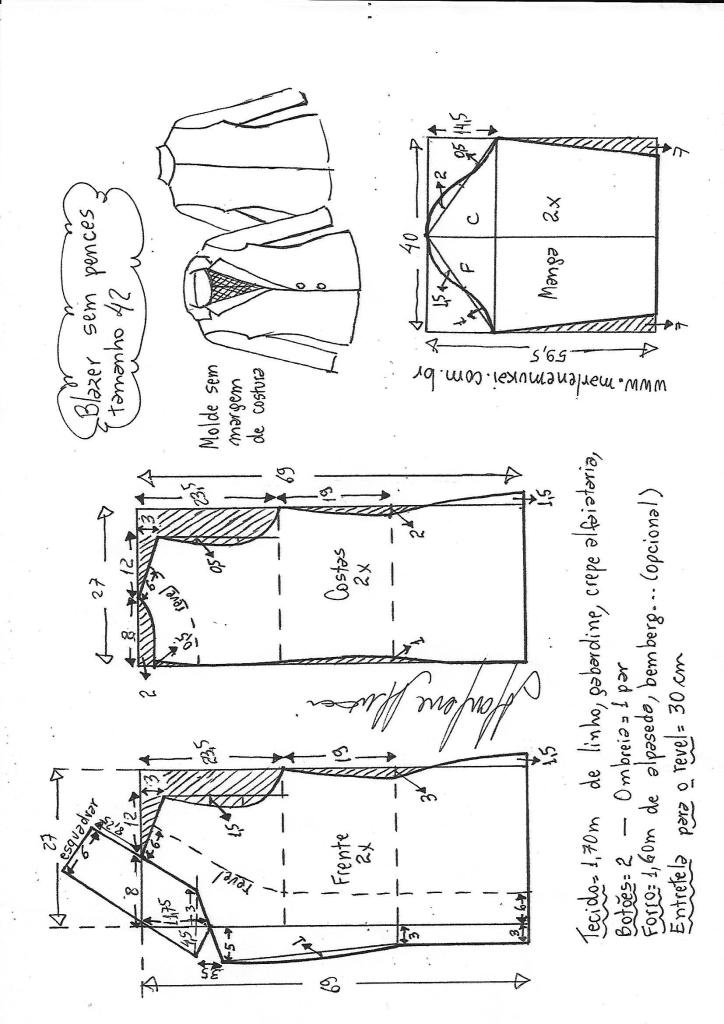 Blazer sem pences
tamanho 42
Molde sem
margem
de costura
40
14,5
0,5
2
C
F
1,5
1
Manga
2x
7
7
59,5
www.marlenemukai.com.br
69
27
8
12
3
23,5
19
2
0,5
6
revel
0,5
Costas
2x
2
1
1,5
27
esquadrar
6
8
12
3
23,5
19
6
1,5
revel
11,75
3
4,5
3,5
5
1
Frente
2x
3
3
3
6
1,5
69
Tecido= 1,70m de linho, gabardine, crepe alfaiataria,
Botões= 2 — Ombreia= 1 par
Forro= 1,60m de alpaseda, bemberg... (opcional)
Entretela para o revel= 30 cm